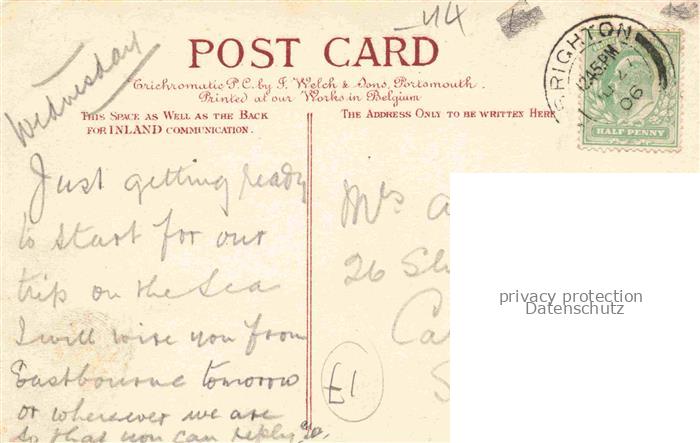 44
POST CARD
Trichromatic P.C. by F. Welch & Sons, Portsmouth.
Printed at our Works in Belgium
THIS SPACE AS WELL AS THE BACK
FOR INLAND COMMUNICATION.
THE ADDRESS ONLY TO BE WRITTEN HERE
BRIGHTON
12.45PM
06
HALF PENNY
Wednesday
Just getting ready
to start for our
trip on the Sea
I will wire you from
Eastbourne tomorrow
or wherever we are
so that you can reply
Mrs A
26 Sh
Ca
S
£1
privacy protection
Datenschutz